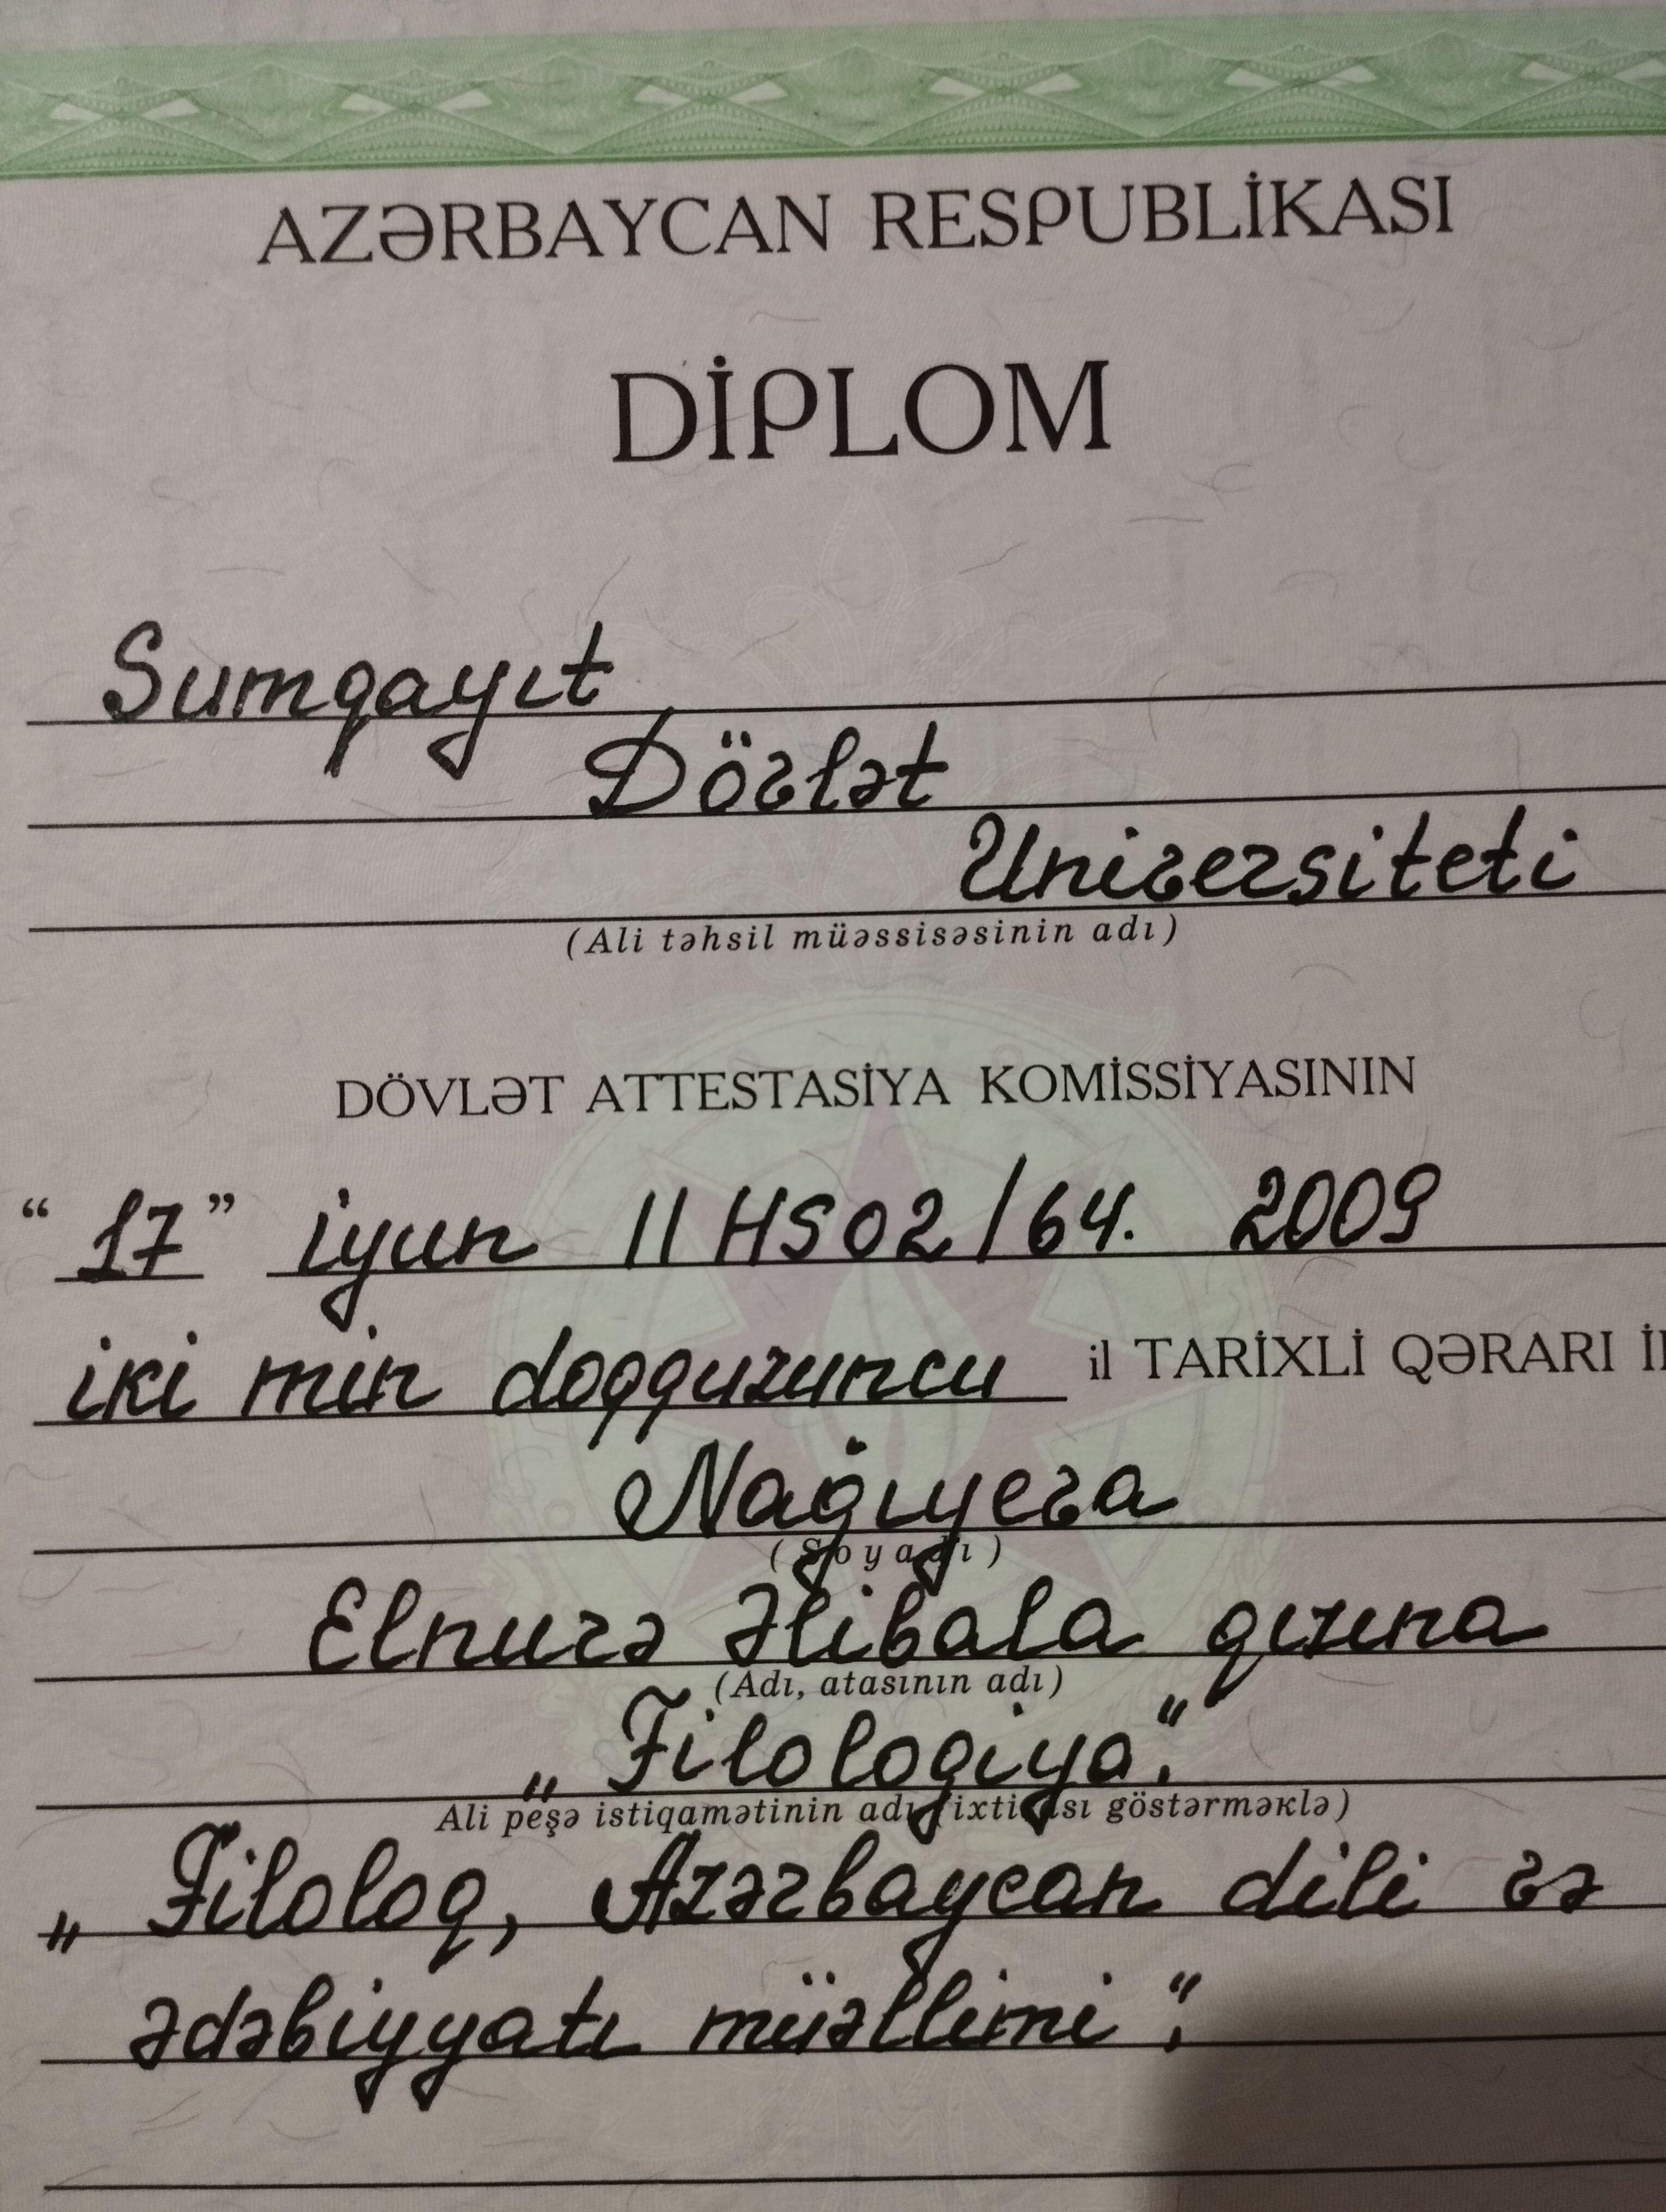 AZƏRBAYCAN RESPUBLİKASI
DİPLOM
Sumqayıt
Dövlət
Universiteti
(Ali təhsil müəssisəsinin adı)
DÖVLƏT ATTESTASİYA KOMİSSİYASININ
“ 17 ” iyun II HS 02/64. 2009
iki min doqquzuncu il TARİXLİ QƏRARI İL
Nağıyeva
(Soyadı)
Elnurə Əlibala qızına
(Adı, atasının adı)
„Filologiya“.
Ali peşə istiqamətinin adı (ixtisası göstərməklə)
„Filoloq, Azərbaycan dili və
ədəbiyyatı müəllimi“.